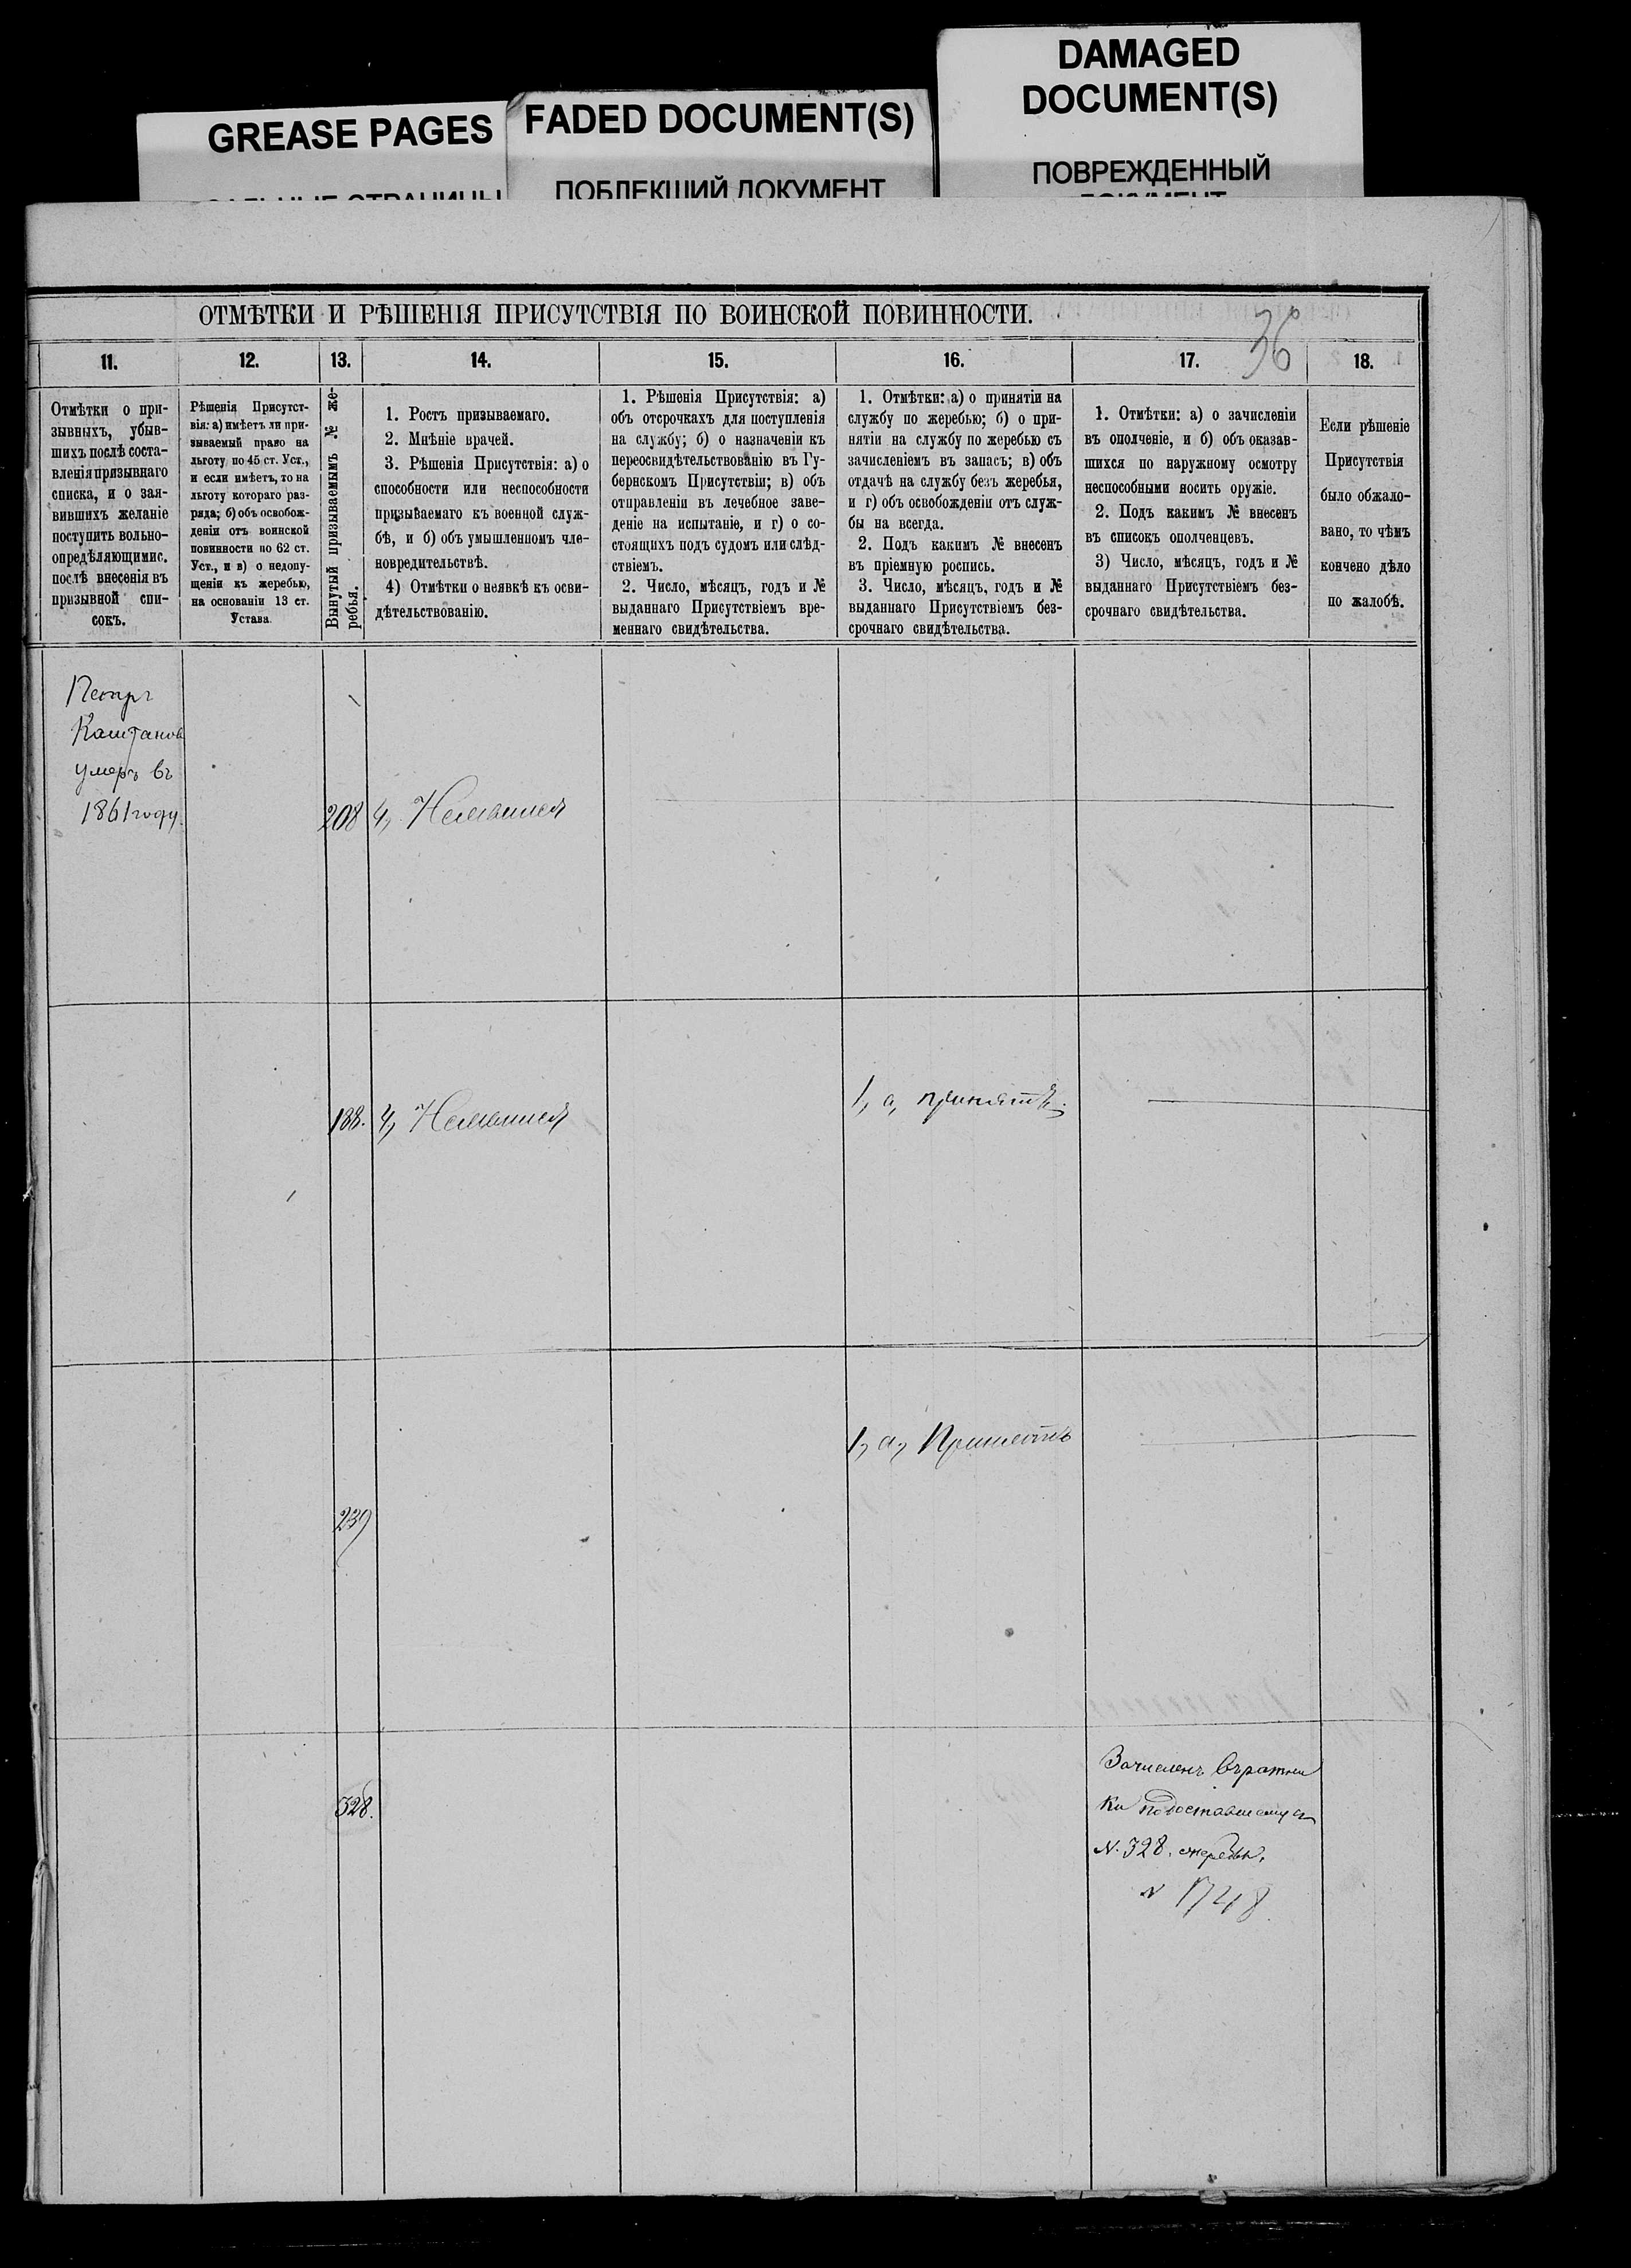 GREASE PAGES
FADED DOCUMENT(S)
ПОБЛЕКШИЙ ДОКУМЕНТ
DAMAGED
DOCUMENT(S)
ПОВРЕЖДЕННЫЙ
ДОКУМЕНТ
ОТМѢТКИ И РѢШЕНІЯ ПРИСУТСТВІЯ ПО ВОИНСКОЙ ПОВИННОСТИ.
36
11.
12.
13.
14.
15.
16.
17.
18.
Отмѣтки о при-
зывныхъ, убыв-
шихъ послѣ соста-
вленія призывнаго
списка, и о зая-
вившихъ желаніе
поступить вольно-
опредѣляющимис.
послѣ внесенія въ
призывной спи-
сокъ.
Рѣшенія Присутст-
вія: а) имѣетъ ли при-
зываемый право на
льготу по 45 ст. Уст.,
и если имѣетъ, то на
льготу котораго раз-
ряда; б) объ освобож-
деніи отъ воинской
повинности по 62 ст.
Уст., и в) о недопу-
щеніи къ жеребью,
на основаніи 13 ст.
Устава.
Вынутый призываемымъ № же-
ребья.
1. Ростъ призываемаго.
2. Мнѣніе врачей.
3. Рѣшенія Присутствія: а) о
способности или неспособности
призываемаго къ военной служ-
бѣ, и б) объ умышленномъ чле-
новредительствѣ.
4) Отмѣтки о неявкѣ къ осви-
дѣтельствованію.
1. Рѣшенія Присутствія: а)
объ отсрочкахъ для поступленія
на службу; б) о назначеніи къ
переосвидѣтельствованію въ Гу-
бернскомъ Присутствіи; в) объ
отправленіи въ лечебное заве-
деніе на испытаніе, и г) о со-
стоящихъ подъ судомъ или слѣд-
ствіемъ.
2. Число, мѣсяцъ, годъ и №
выданнаго Присутствіемъ вре-
меннаго свидѣтельства.
1. Отмѣтки: а) о принятіи на
службу по жеребью; б) о при-
нятіи на службу по жеребью съ
зачисленіемъ въ запасъ; в) объ
отдачѣ на службу безъ жеребья,
и г) объ освобожденіи отъ служ-
бы на всегда.
2. Подъ какимъ № внесенъ
въ пріемную роспись.
3. Число, мѣсяцъ, годъ и №
выданнаго Присутствіемъ без-
срочнаго свидѣтельства.
1. Отмѣтки: а) о зачисленіи
въ ополченіе, и б) объ оказав-
шихся по наружному осмотру
неспособными носить оружіе.
2. Подъ какимъ № внесенъ
въ списокъ ополченцевъ.
3) Число, мѣсяцъ, годъ и №
выданнаго Присутствіемъ без-
срочнаго свидѣтельства.
Если рѣшеніе
Присутствія
было обжало-
вано, то чѣмъ
кончено дѣло
по жалобѣ.
Петръ
Каштановъ
умеръ въ
1861 году.
208
4, Неявился
188.
4, Неявился
1, а, принятъ.
1, а, Принятъ
239
328.
Зачисленъ въ ратни
ки по доставшемуся
N. 328. жеребью.
N 1748